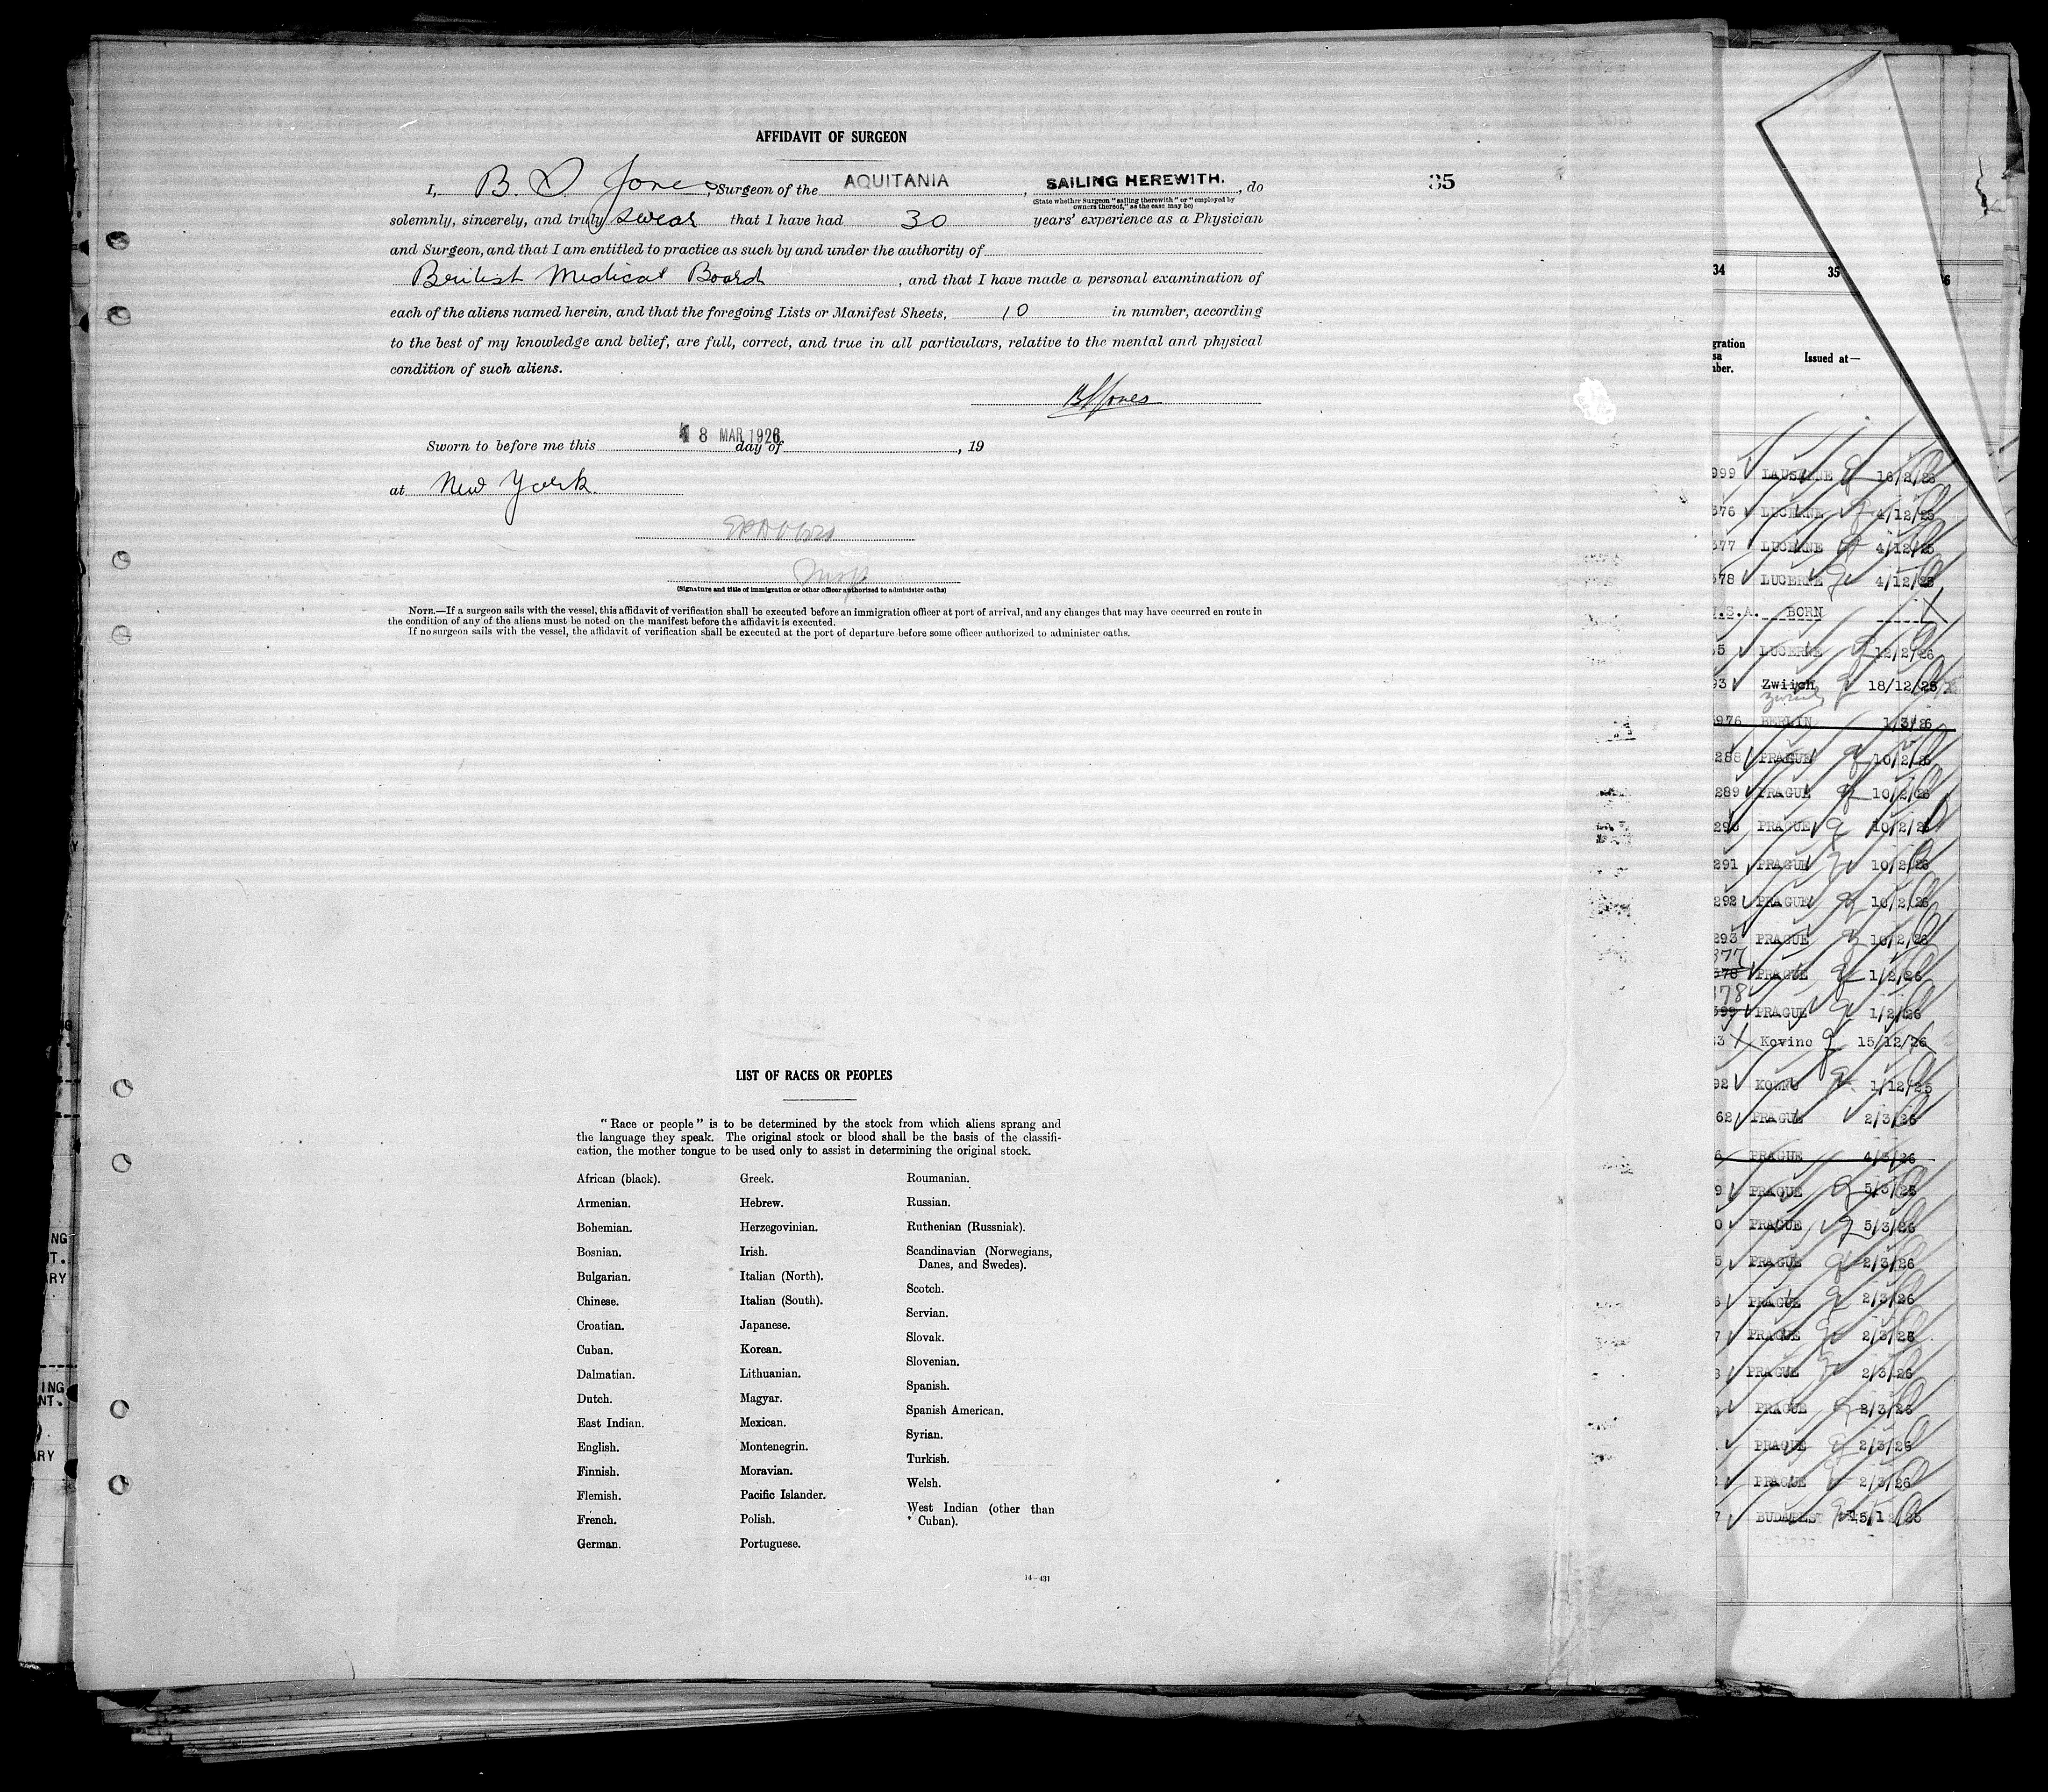 AFFIDAVIT OF SURGEON
I, B. Jones, Surgeon of the AQUITANIA, SAILING HEREWITH., do
35
(State whether Surgeon "sailing therewith" or "employed by
owners thereof," as the case may be)
solemnly, sincerely, and truly swear that I have had 30 years' experience as a Physician
and Surgeon, and that I am entitled to practice as such by and under the authority of
British Medical Board, and that I have made a personal examination of
each of the aliens named herein, and that the foregoing Lists or Manifest Sheets, 10 in number, according
to the best of my knowledge and belief, are full, correct, and true in all particulars, relative to the mental and physical
condition of such aliens.
Jones
Sworn to before me this 18 MAR 1926 day of , 19
at New York.
Insp
(Signature and title of immigration or other officer authorized to administer oaths)
NOTE.—If a surgeon sails with the vessel, this affidavit of verification shall be executed before an immigration officer at port of arrival, and any changes that may have occurred en route in
the condition of any of the aliens must be noted on the manifest before the affidavit is executed.
If no surgeon sails with the vessel, the affidavit of verification shall be executed at the port of departure before some officer authorized to administer oaths.
LIST OF RACES OR PEOPLES
"Race or people" is to be determined by the stock from which aliens sprang and
the language they speak. The original stock or blood shall be the basis of the classifi-
cation, the mother tongue to be used only to assist in determining the original stock.
African (black).
Armenian.
Bohemian.
Bosnian.
Bulgarian.
Chinese.
Croatian.
Cuban.
Dalmatian.
Dutch.
East Indian.
English.
Finnish.
Flemish.
French.
German.
Greek.
Hebrew.
Herzegovinian.
Irish.
Italian (North).
Italian (South).
Japanese.
Korean.
Lithuanian.
Magyar.
Mexican.
Montenegrin.
Moravian.
Pacific Islander.
Polish.
Portuguese.
Roumanian.
Russian.
Ruthenian (Russniak).
Scandinavian (Norwegians,
Danes, and Swedes).
Scotch.
Servian.
Slovak.
Slovenian.
Spanish.
Spanish American.
Syrian.
Turkish.
Welsh.
West Indian (other than
Cuban).
14-431
34 35
Issued at—
999 LAUSANNE 16/2/26
576 LUCERNE 4/12/25
577 LUCERNE 4/12/25
578 LUCERNE 4/12/25
U.S.A. BORN
5 LUCERNE 12/2/26
93 Zwiich 18/12/25
Zurich
976 BERLIN 1/3/26
288 PRAGUE 10/2/26
289 PRAGUE 10/2/26
290 PRAGUE 10/2/26
291 PRAGUE 10/2/26
292 PRAGUE 10/2/26
293 PRAGUE 10/2/26
377
378 PRAGUE 1/2/26
378
399 PRAGUE 1/2/26
3 Kovino 15/12/26
92 KOVNO 1/12/25
62 PRAGUE 2/3/26
6 PRAGUE 4/3/26
9 PRAGUE 5/3/26
0 PRAGUE 5/3/26
5 PRAGUE 2/3/26
6 PRAGUE 2/3/26
7 PRAGUE 2/3/26
8 PRAGUE 2/3/26
PRAGUE 2/3/26
1 PRAGUE 2/3/26
2 PRAGUE 2/3/26
7 BUDAPEST